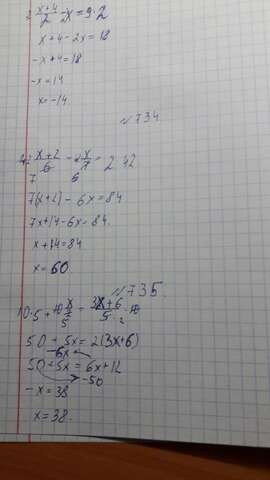 2· x+4/2 - x·2 = 9·2
x+4-2x=18
-x+4=18
-x=14
x=-14
№734
42· x+2/6 - x/7 = 2·42
7 6
7(x+2)-6x=84
7x+14-6x=84
x+14=84
x=60
№735.
10·5+10 x/5 = 3x+6/5 ·10
2
50+5x=2(3x+6)
-6x
50+5x=6x+12
-50
-x=38
x=38.